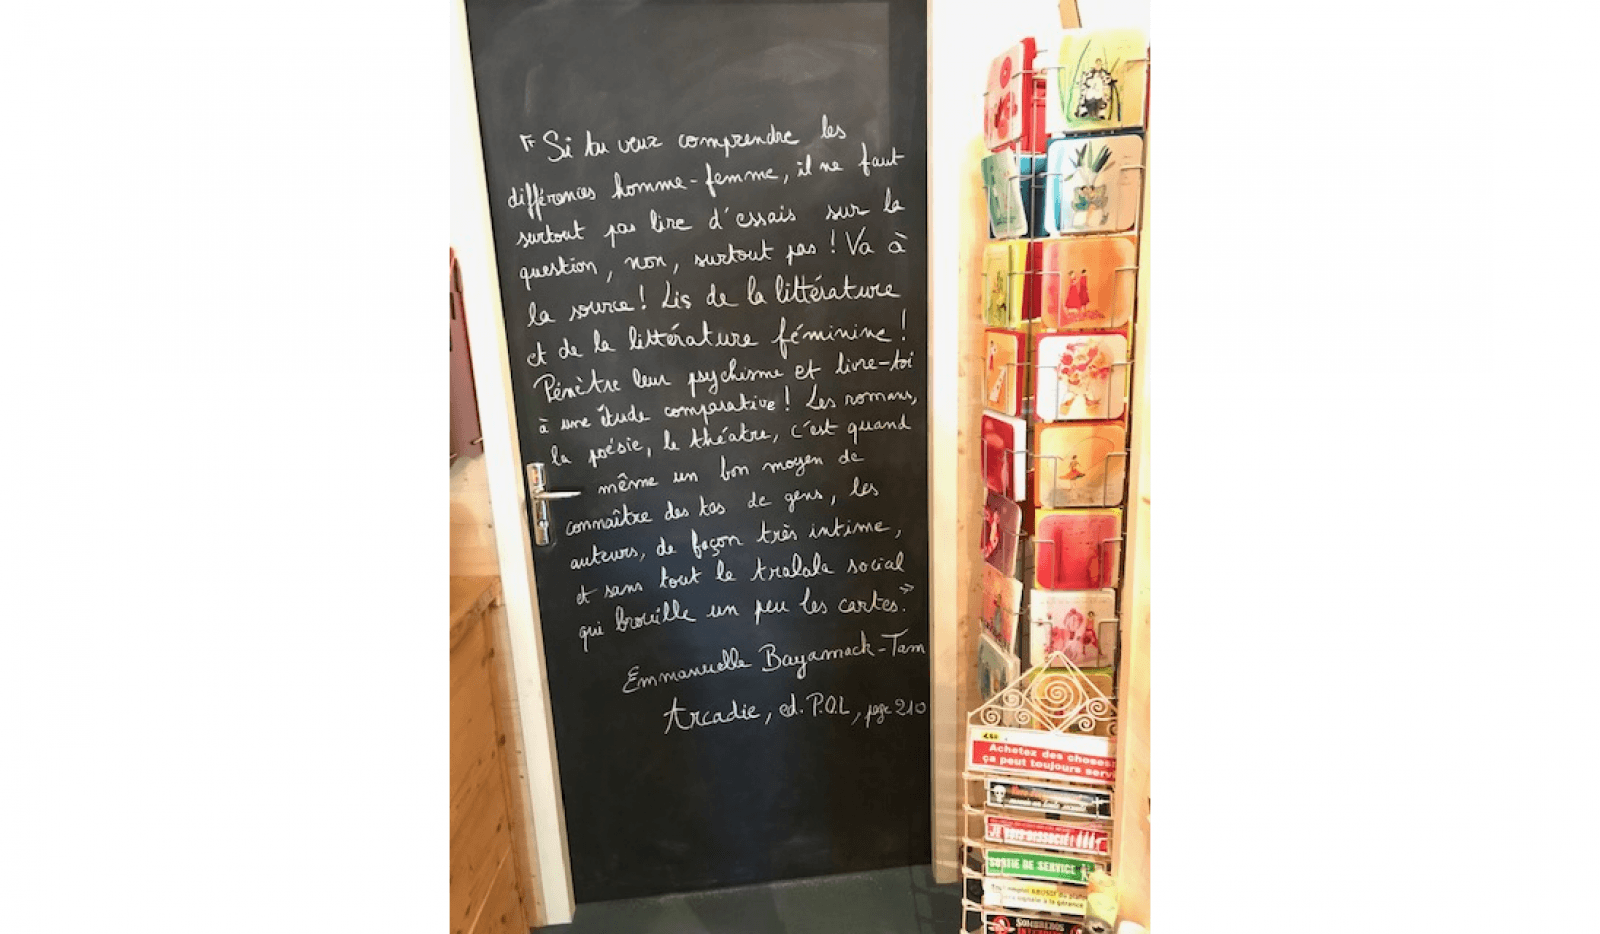 « Si tu veux comprendre les
différences homme-femme, il ne faut
surtout pas lire d'essais sur la
question, non, surtout pas ! Va à
la source ! Lis de la littérature
et de la littérature féminine !
Pénètre leur psychisme et livre-toi
à une étude comparative ! Les romans,
la poésie, le théâtre, c'est quand
même un bon moyen de
connaître des tas de gens, les
auteurs, de façon très intime,
et sans tout le tralala social
qui brouille un peu les cartes. »
Emmanuelle Bayamack-Tam
Arcadie, ed. P.O.L, page 210
Achetez des choses
ça peut toujours servi
SORTIE DE SERVICE
SOMBREROS